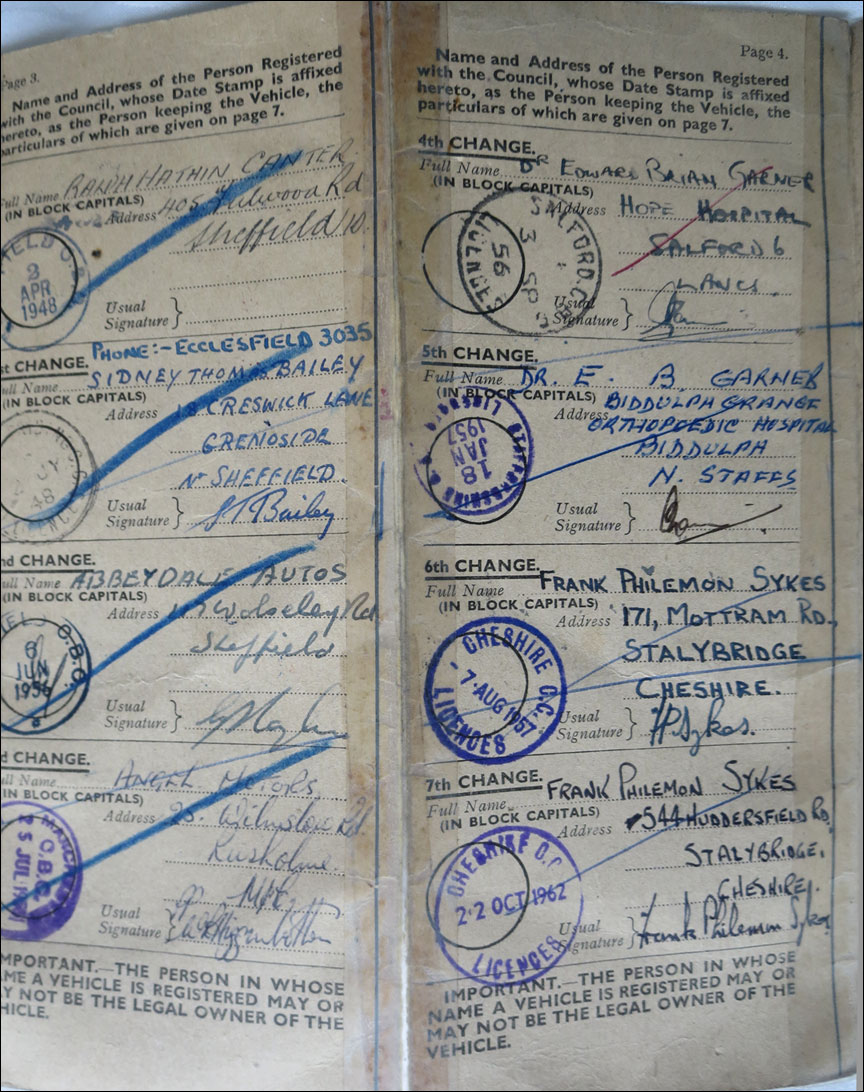 Page 3.
Name and Address of the Person Registered
with the Council, whose Date Stamp is affixed
hereto, as the Person keeping the Vehicle, the
particulars of which are given on page 7.
Full Name RALPH HATHIN CANTER
(IN BLOCK CAPITALS)
Address 405 Fulwood Rd
Sheffield 10.
FIELD C.B.
2
APR
1948
Usual
Signature
PHONE:- ECCLESFIELD 3035
st CHANGE.
Full Name SIDNEY THOMAS BAILEY
(IN BLOCK CAPITALS)
Address 18 CRESWICK LANE
GRENOSIDE
Nr SHEFFIELD.
Usual
Signature S T Bailey
nd CHANGE.
ull Name ABBEYDALE AUTOS
(IN BLOCK CAPITALS)
Address Wolseley Rd
Sheffield
C.B.C.
6
JUN
1956
Usual
Signature
d CHANGE.
ull Name ANGEL MOTORS
(IN BLOCK CAPITALS)
25. Wilmslow Rd.
Rusholme
M/c
C.B.C.
25 JUL
Usual
Signature
IMPORTANT.—THE PERSON IN WHOSE
AME A VEHICLE IS REGISTERED MAY OR
Y NOT BE THE LEGAL OWNER OF THE
HICLE.
Page 4.
Name and Address of the Person Registered
with the Council, whose Date Stamp is affixed
hereto, as the Person keeping the Vehicle, the
particulars of which are given on page 7.
4th CHANGE.
Full Name Dr EDWARD BRIAN GARNER
(IN BLOCK CAPITALS)
Address HOPE HOSPITAL
SALFORD 6
LANCS.
SALFORD C.
3 SP
56
Usual
Signature
5th CHANGE.
Full Name DR. E. B. GARNER
(IN BLOCK CAPITALS)
Address BIDDULPH GRANGE
ORTHOPOEDIC HOSPITAL
BIDDULPH
N. STAFFS
18
JAN
1957
Usual
Signature
6th CHANGE.
Full Name FRANK PHILEMON SYKES
(IN BLOCK CAPITALS)
Address 171, MOTTRAM RD.,
STALYBRIDGE
CHESHIRE.
CHESHIRE C.C.
7 AUG 1957
LICENCES
Usual
Signature F.P.Sykes.
7th CHANGE.
Full Name FRANK PHILEMON SYKES
(IN BLOCK CAPITALS)
Address 544 HUDDERSFIELD RD,
STALYBRIDGE,
CHESHIRE.
CHESHIRE C.C.
22 OCT 1962
LICENCES
Usual
Signature Frank Philemon Sykes
IMPORTANT.—THE PERSON IN WHOSE
NAME A VEHICLE IS REGISTERED MAY OR
MAY NOT BE THE LEGAL OWNER OF THE
VEHICLE.